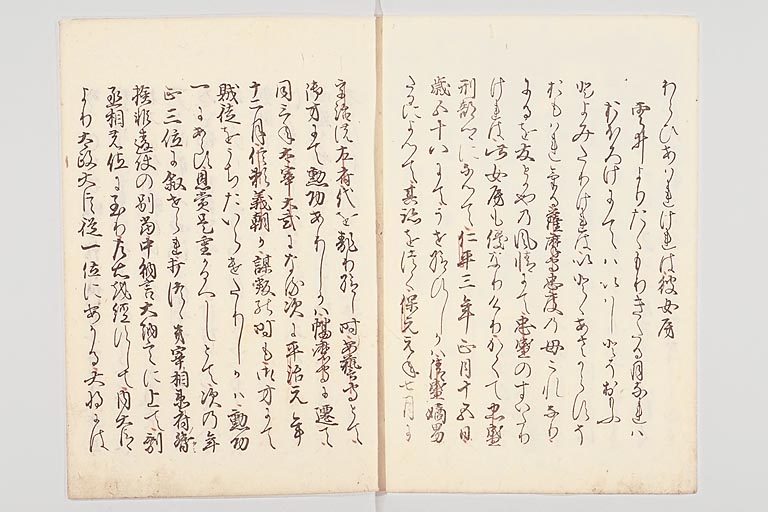 わらひあはれけれは彼女房
雲井よりたゝもりきたる月なれは
おほろけにてはいはしとそおもふ
とよみたりけれはいとゝあさからすそ
おもはれける薩摩守忠度の母これなり
にるを友とかやの風情にて忠盛のすいたり
けれは此女房も優なりけりかくて忠盛
刑部卿になつて仁平三年正月十五日
歳五十八にてうせ給ひしかは清盛嫡男
たるによつて其跡をつく保元元年七月に
宇治の左府代を乱り給ひし時安藝守とて
御方にて勲功ありしかは播磨守に遷て
同三年太宰大貳になる次に平治元年
十二月信頼義朝か謀叛の時も御方にて
賊徒をうちたいらけたりしかは勲功
一にあらす恩賞是重かるへしとて次の年
正三位に叙せられ打つゝき宰相衛府督
検非違使の別當中納言大納言に上て剰
丞相の位に至り左右を経すして内大臣
より太政大臣従一位にあかる大将には